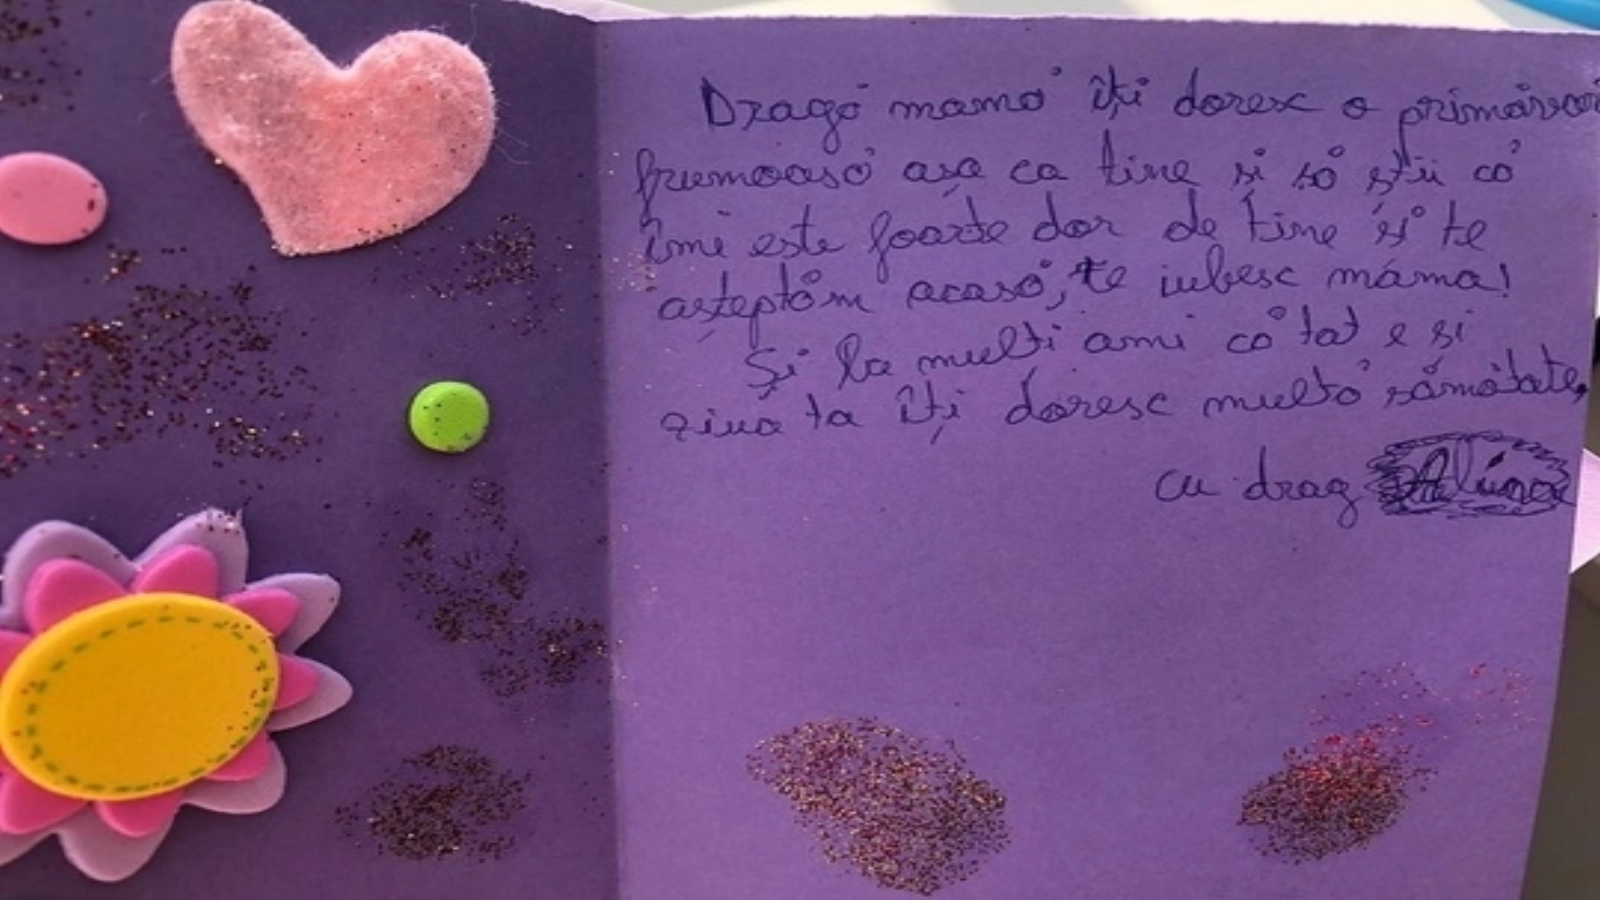 Dragă mamă îți doresc o primăvară
frumoasă așa ca tine și să știi că
îmi este foarte dor de tine și te
așteptăm acasă, te iubesc mama!
Și la mulți ani că tot e și
ziua ta îți doresc multă sănătate,
cu drag